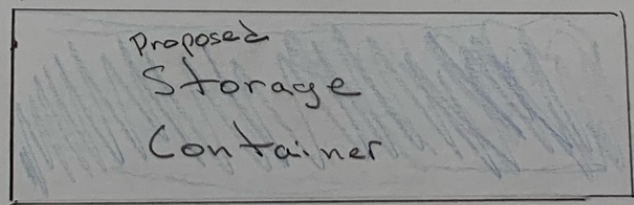 Proposed
Storage
Container